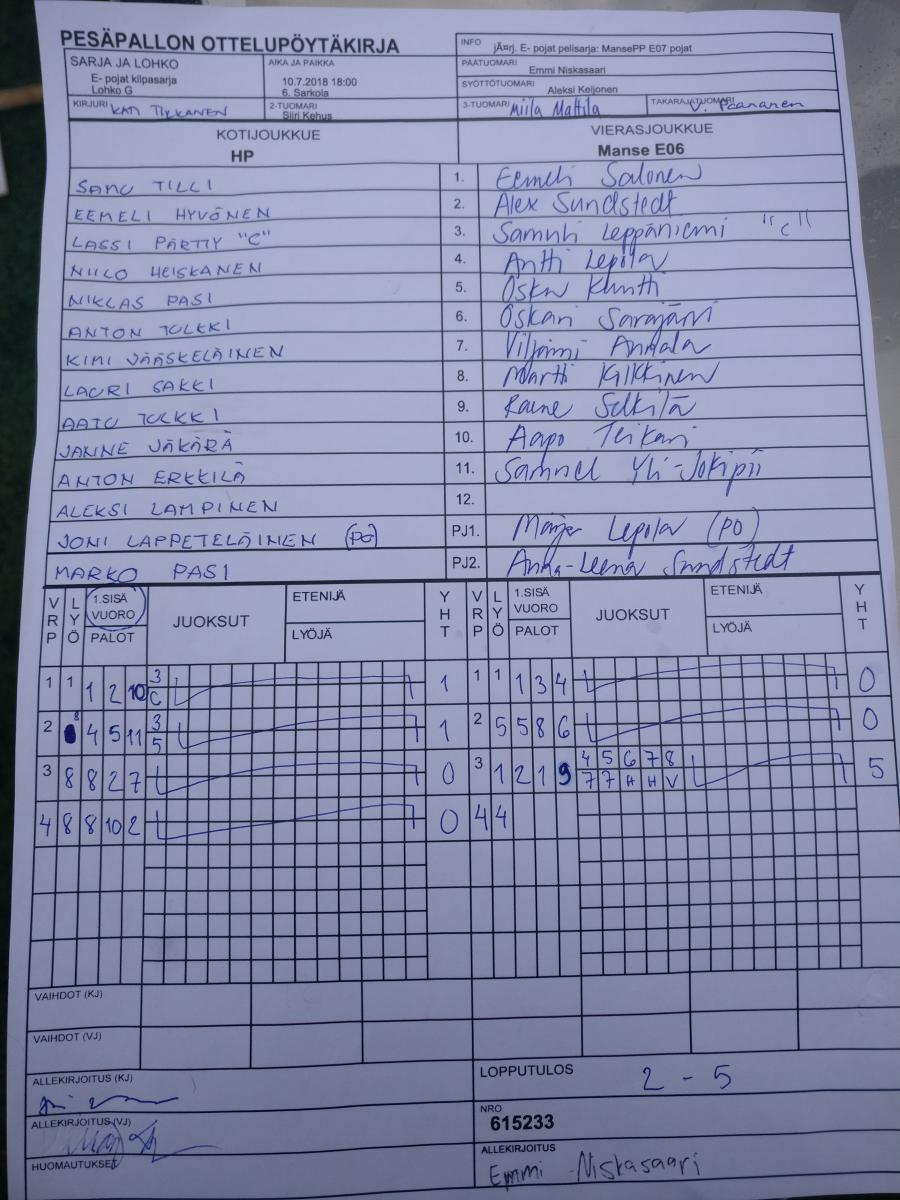 PESÄPALLON OTTELUPÖYTÄKIRJA
INFO jÃ¤rj. E- pojat pelisarja: MansePP E07 pojat
SARJA JA LOHKO
E- pojat kilpasarja
Lohko G
AIKA JA PAIKKA
10.7.2018 18:00
6. Sarkola
PÄÄTUOMARI Emmi Niskasaari
SYÖTTÖTUOMARI Aleksi Keijonen
KIRJURI KATI TIKKANEN
2-TUOMARI Siiri Kehus
3-TUOMARI Miila Mattila
TAKARAJATUOMARI V. Paananen
KOTIJOUKKUE
HP
VIERASJOUKKUE
Manse E06
SAMU TILLI 1. Eemeli Salonen
EEMELI HYVÖNEN 2. Alex Sundstedt
LASSI PÄRTTY "C" 3. Samuli Leppäniemi "C"
NIILO HEISKANEN 4. Antti Lepola
NIKLAS PASI 5.
ANTON TOLKKI 6. Oskari Sarajärvi
KIMI JÄÄSKELÄINEN 7. Viljami Annala
LAURI SAKKI 8. Martti Kilkkinen
AATU TOLKKI 9. Raine Selkilä
JANNE JÄKÄRÄ 10. Aapo Teikari
ANTON ERKKILÄ 11. Samuel Yli-Jokipii
ALEKSI LAMPINEN 12.
JONI LAPPETELÄINEN (PG) PJ1. Marja Lepola (PO)
MARKO PASI PJ2. Anna-Leena Sundstedt
VRP LYÖ 1.SISÄ VUORO PALOT JUOKSUT ETENIJÄ LYÖJÄ YHT VRP LYÖ 1.SISÄ VUORO PALOT JUOKSUT ETENIJÄ LYÖJÄ YHT
1 1 1 2 10 3 C 1 1 1 1 3 4 0
2 8 4 5 11 3 5 1 2 5 5 8 6 0
3 8 8 2 7 0 3 1 2 1 9 4 5 6 7 8 5
7 7 H H V
4 8 8 10 2 0 4 4
VAIHDOT (KJ)
VAIHDOT (VJ)
ALLEKIRJOITUS (KJ)
LOPPUTULOS 2 - 5
ALLEKIRJOITUS (VJ)
NRO
615233
HUOMAUTUKSET
ALLEKIRJOITUS
Emmi Niskasaari